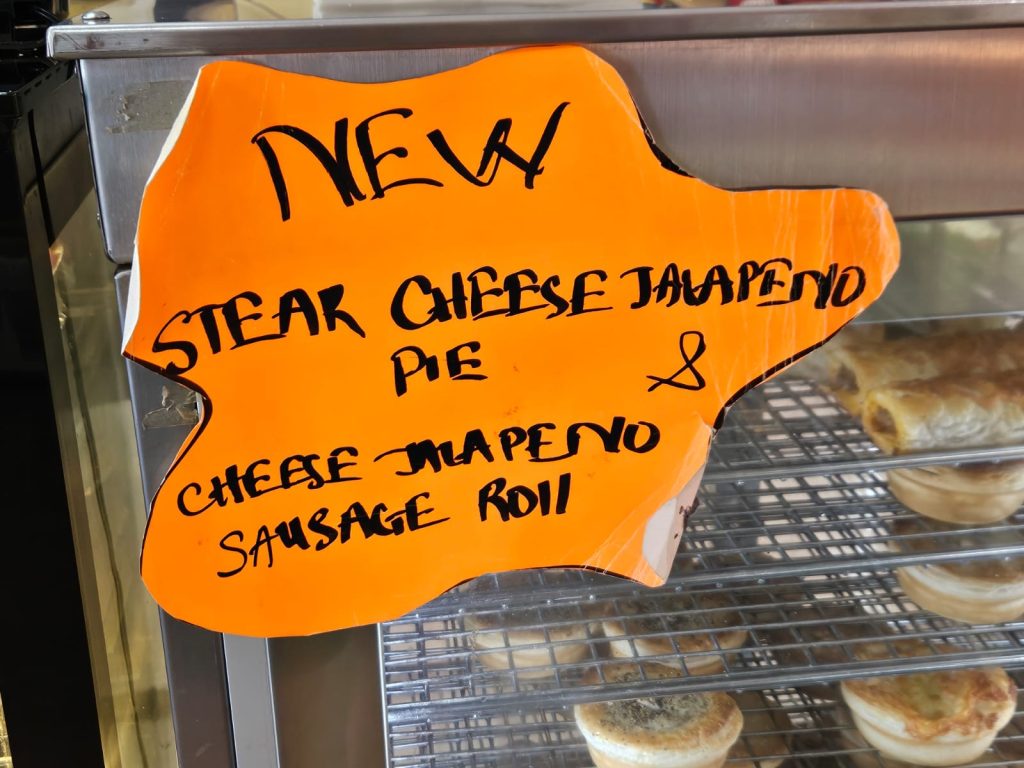 NEW
STEAK CHEESE JALAPENO
PIE &
CHEESE JALAPENO
SAUSAGE ROll